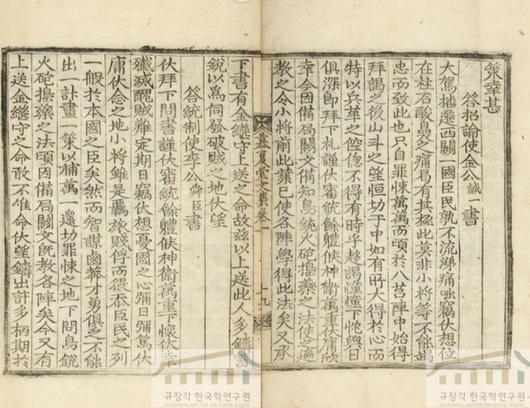 策幸甚
答招諭使金公誠一書
大駕播遷西關一國臣民孰不流涕痛
在壯石酸鼻
忠而致此也只自罪悚萬萬而頃於八莒陣中始得
拜謁之後山斗之望恒切于中如有所大得於心而
特以兵革之倥傯不得有時乎趨謁憧憧下悅與日
俱深卽伏拜下札謹伏審統餘體使神衛萬重下伏庸欣
幸令因備局關文備知鳥銃火砲搗藥之法使之遍
教之令小將前此業已使各陣學得此法矣又承
下書有金繼守上送之命故玆以上送此人多鑄
銃以爲同發破賊之地伏望
答統制使李公舜臣書
伏拜下問書謹伏審統餘體使神衛萬重下懷伏幸
殲滅醜賊難定期日竊伏想憂國之心彌日彌篤伏
庸伏念之地小將雖是羈旅賤俘而猥忝臣民之列
一般於本國之臣矣然而智謀鹵莽才勇俱乏不能
出一計畫一策以補萬一還切罪悚之地下問鳥銃
火砲搗藥之法頃因備局關文旣教各陣矣今又有
上送金繼守之命敢不惟命伏望鑄出許多柄期於
慕夏堂文集卷一
十九
규장각 한국학연구원
규장각 한국학연구원